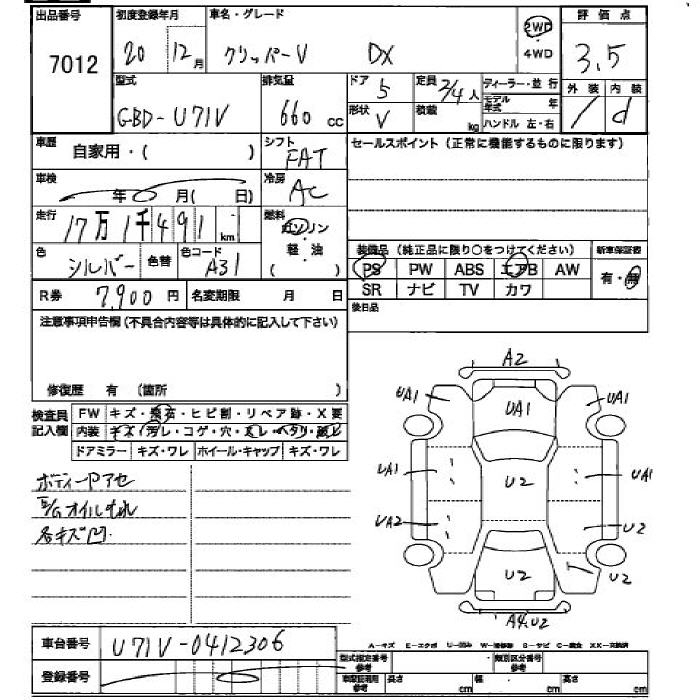 出品番号 初度登録年月 車名・グレード 2WD 評価点
7012 20 12月 クリッパーV DX ・4WD 3.5
型式 排気量 ドア 5 定員 2/4人 ディーラー・並行 外装 内装
GBD-U71V 660cc 形状 V 積載 kg モデル年式 年 ハンドル 左・右 d
車歴 自家用・( ) シフト FAT セールスポイント(正常に機能するものに限ります)
車検 年 月( 日) 冷房 AC
走行 17万1千491 km 燃料 ガソリン
色 シルバー 色替 色コード A31 軽・油 ( ) 装備品(純正品に限り○をつけてください) 新車保証書
PS PW ABS エアB AW 有・無
R券 7,900円 名変期限 月 日 SR ナビ TV カワ
注意事項申告欄(不具合内容等は具体的に記入して下さい) 後日品
修復歴 有 (箇所 )
検査員 FW キズ・飛石・ヒビ割・リペア跡・X要
記入欄 内装 キズ・汚レ・コゲ・穴・スレ・ヘタリ・破レ
ドアミラー キズ・ワレ ホイール・キャップ キズ・ワレ
A2
UA1 UA1 UA1
UA1 U2 UA1
UA2 U2
U2 U2
A4.U2
E/Gオイルもれ
各キズ凹
車台番号 U71V-0412306
A-キズ E-エクボ U-凹み W-補修跡 S-サビ C-腐食 XX-交換済
登録番号 型式指定番号 参考 類別区分番号 参考
車庫証明用 参考 長さ cm 幅 cm 高さ cm